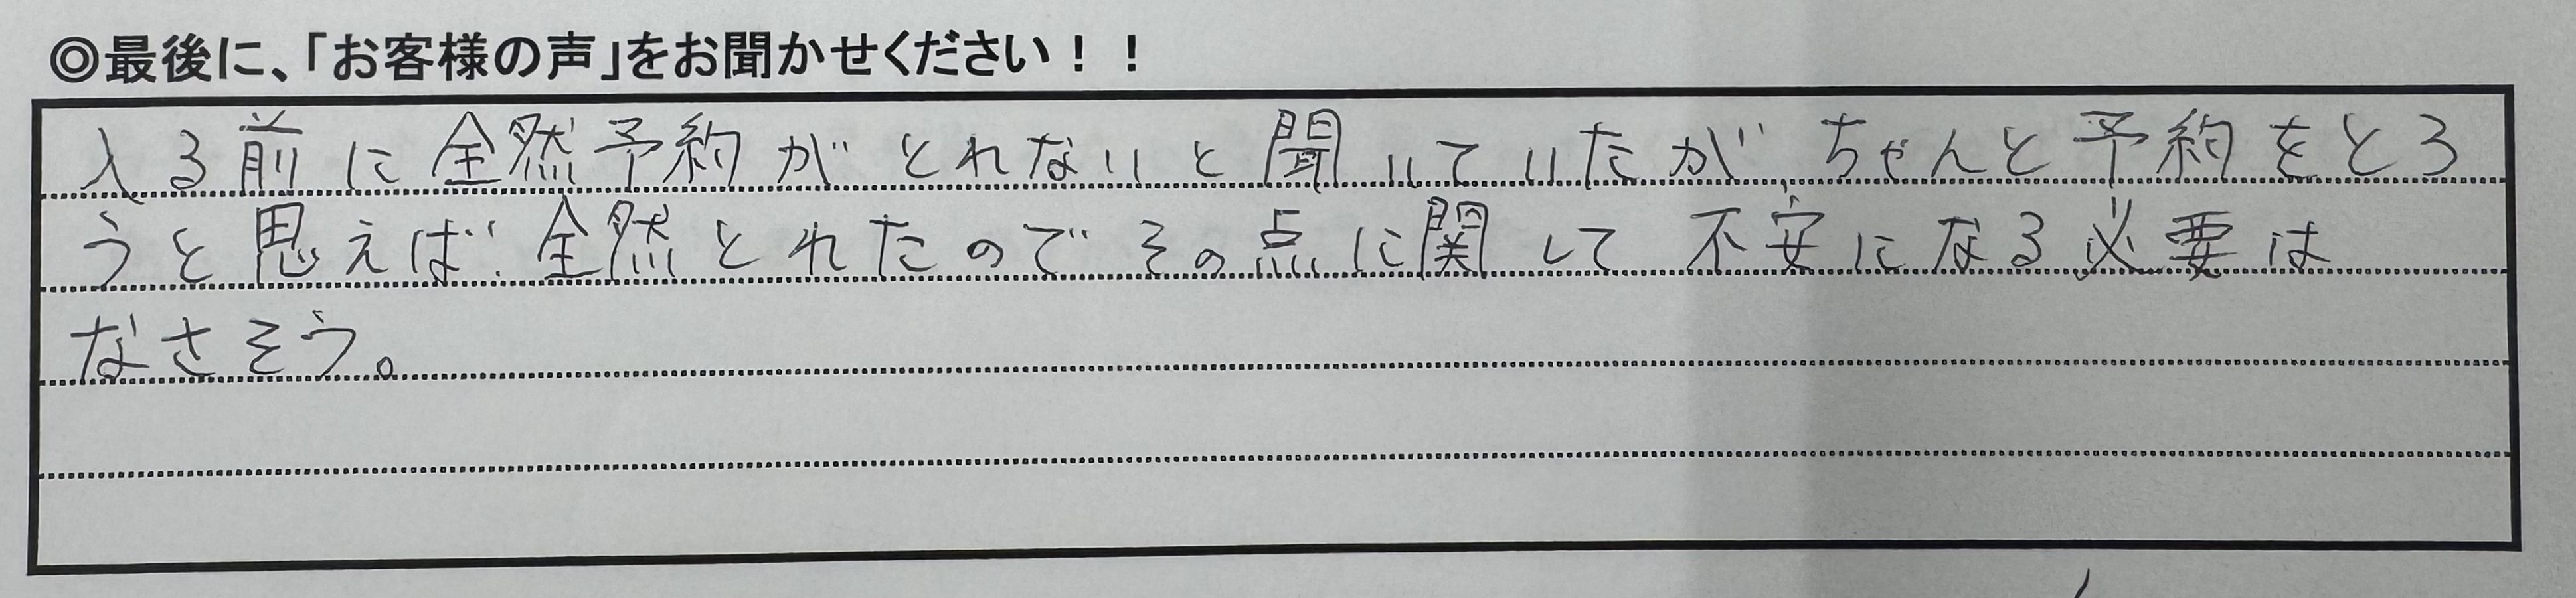 ◎最後に、「お客様の声」をお聞かせください！！
入る前に全然予約がとれないと聞いていたが、ちゃんと予約をとろ
うと思えば、全然とれたのでその点に関して不安になる必要は
なさそう。